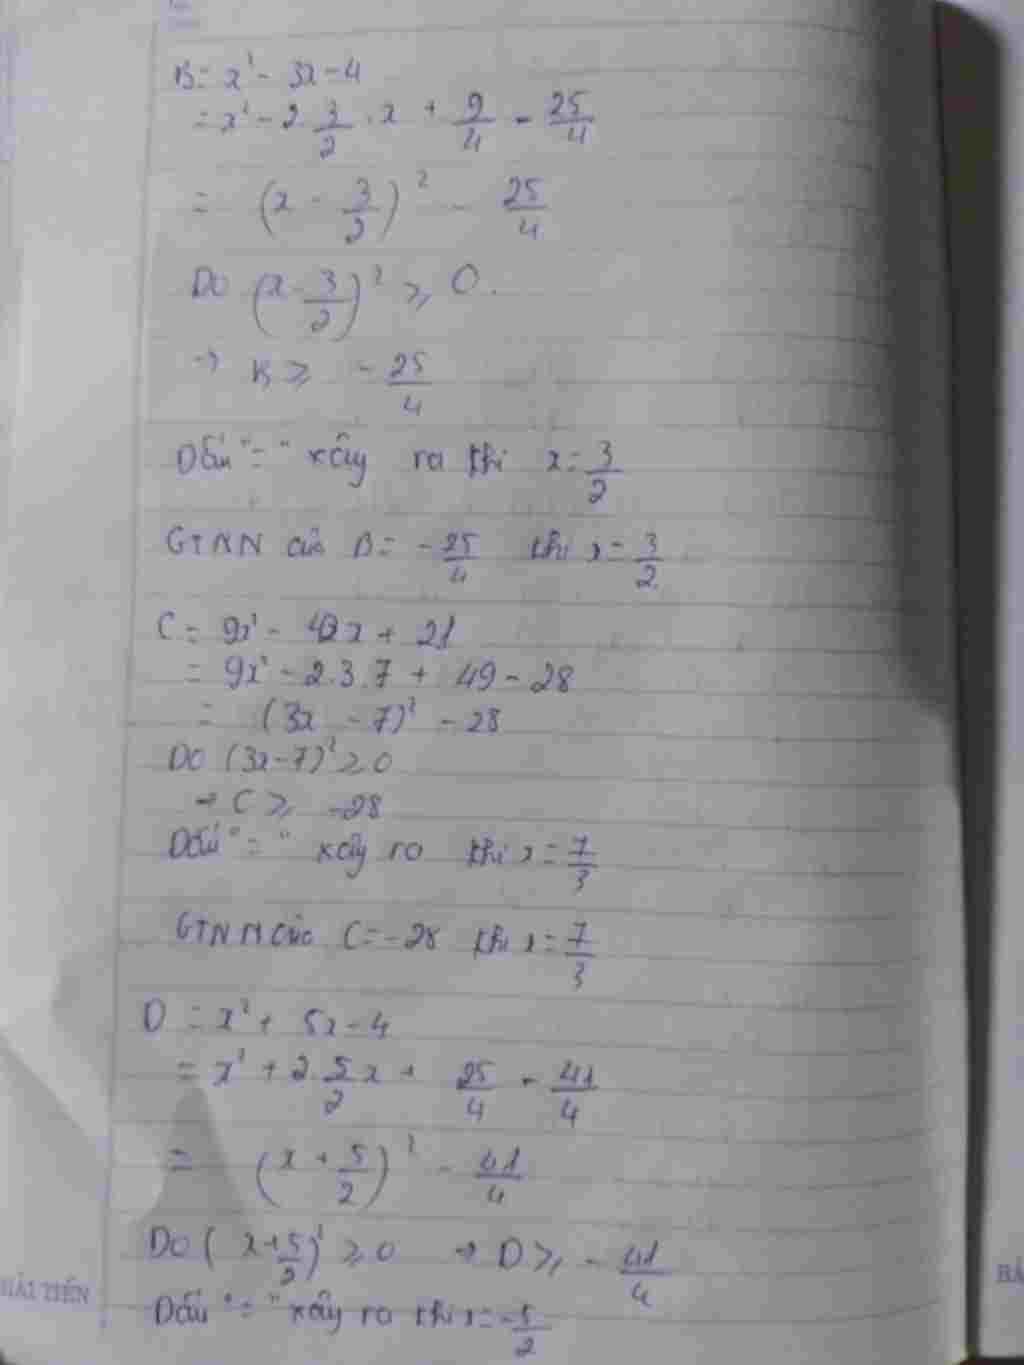 B = x² - 3x - 4
= x² - 2.3/2.x + 9/4 - 25/4
= (x - 3/2)² - 25/4
Do (x - 3/2)² ≥ 0.
→ B ≥ -25/4
Dấu "=" xảy ra khi x = 3/2
GTNN của B = -25/4 khi x = 3/2
C = 9x² - 42x + 21
= 9x² - 2.3.7 + 49 - 28
= (3x - 7)² - 28
Do (3x - 7)² ≥ 0
→ C ≥ -28
Dấu "=" xảy ra khi x = 7/3
GTNN của C = -28 khi x = 7/3
D = x² + 5x - 4
= x² + 2.5/2x + 25/4 - 41/4
= (x + 5/2)² - 41/4
Do (x + 5/2)² ≥ 0 → D ≥ -41/4
Dấu "=" xảy ra khi x = -5/2
HẢI TIẾN